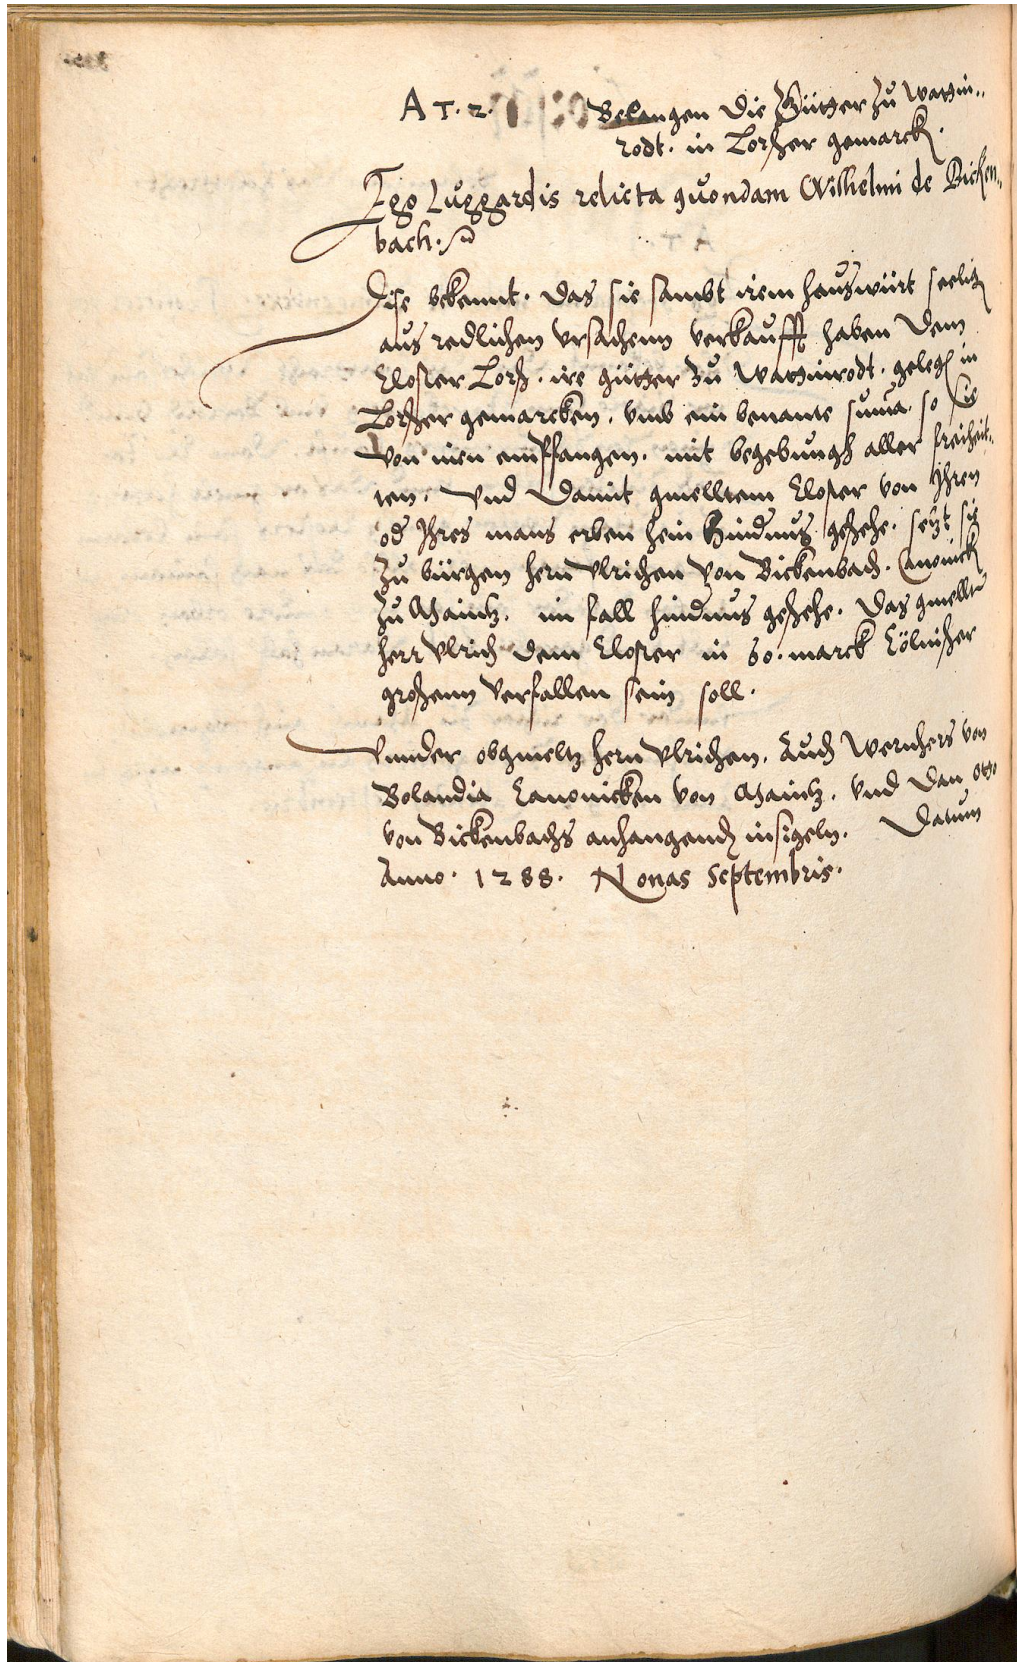 A T. 2. Belangen die Gütter zu Wattin¬
rodt. in Lorßer gemarck.
Ego Luggardis relicta quondam Wilhelmi de Bicken¬
bach. etc
Dise bekennt. das sie sambt irem hauswürt seelig
aus redlichen ursachenn verkaufft haben dem
Closter Lorß. ire gütter zu Wattinrodt. gelegen in
Lorßer gemarcken. umb ein benante suma. so sie
von inen empfangen. mit begebungh aller freiheit¬
ten. Und damit gmelltem Closter von Ihren
od Ihres mans erben hein hindnus geschehe. setzt sie
zu bürgen hern Ulrichen von Bickenbach. Canonick
zu Maintz. im fall hindnus geschehe. das gmellter
herr Ulrich dem Closter in 60. marck Cölnischer
großenn verfallen sein soll.
Unnder obgmeltz hern Ulrichen. Auch Wernhers von
Bolandia Canonicken von Maintz. und dan Otto
von Bickenbachs anhangend insigeln. Datum
Anno. 1288. Nonas Septembris.